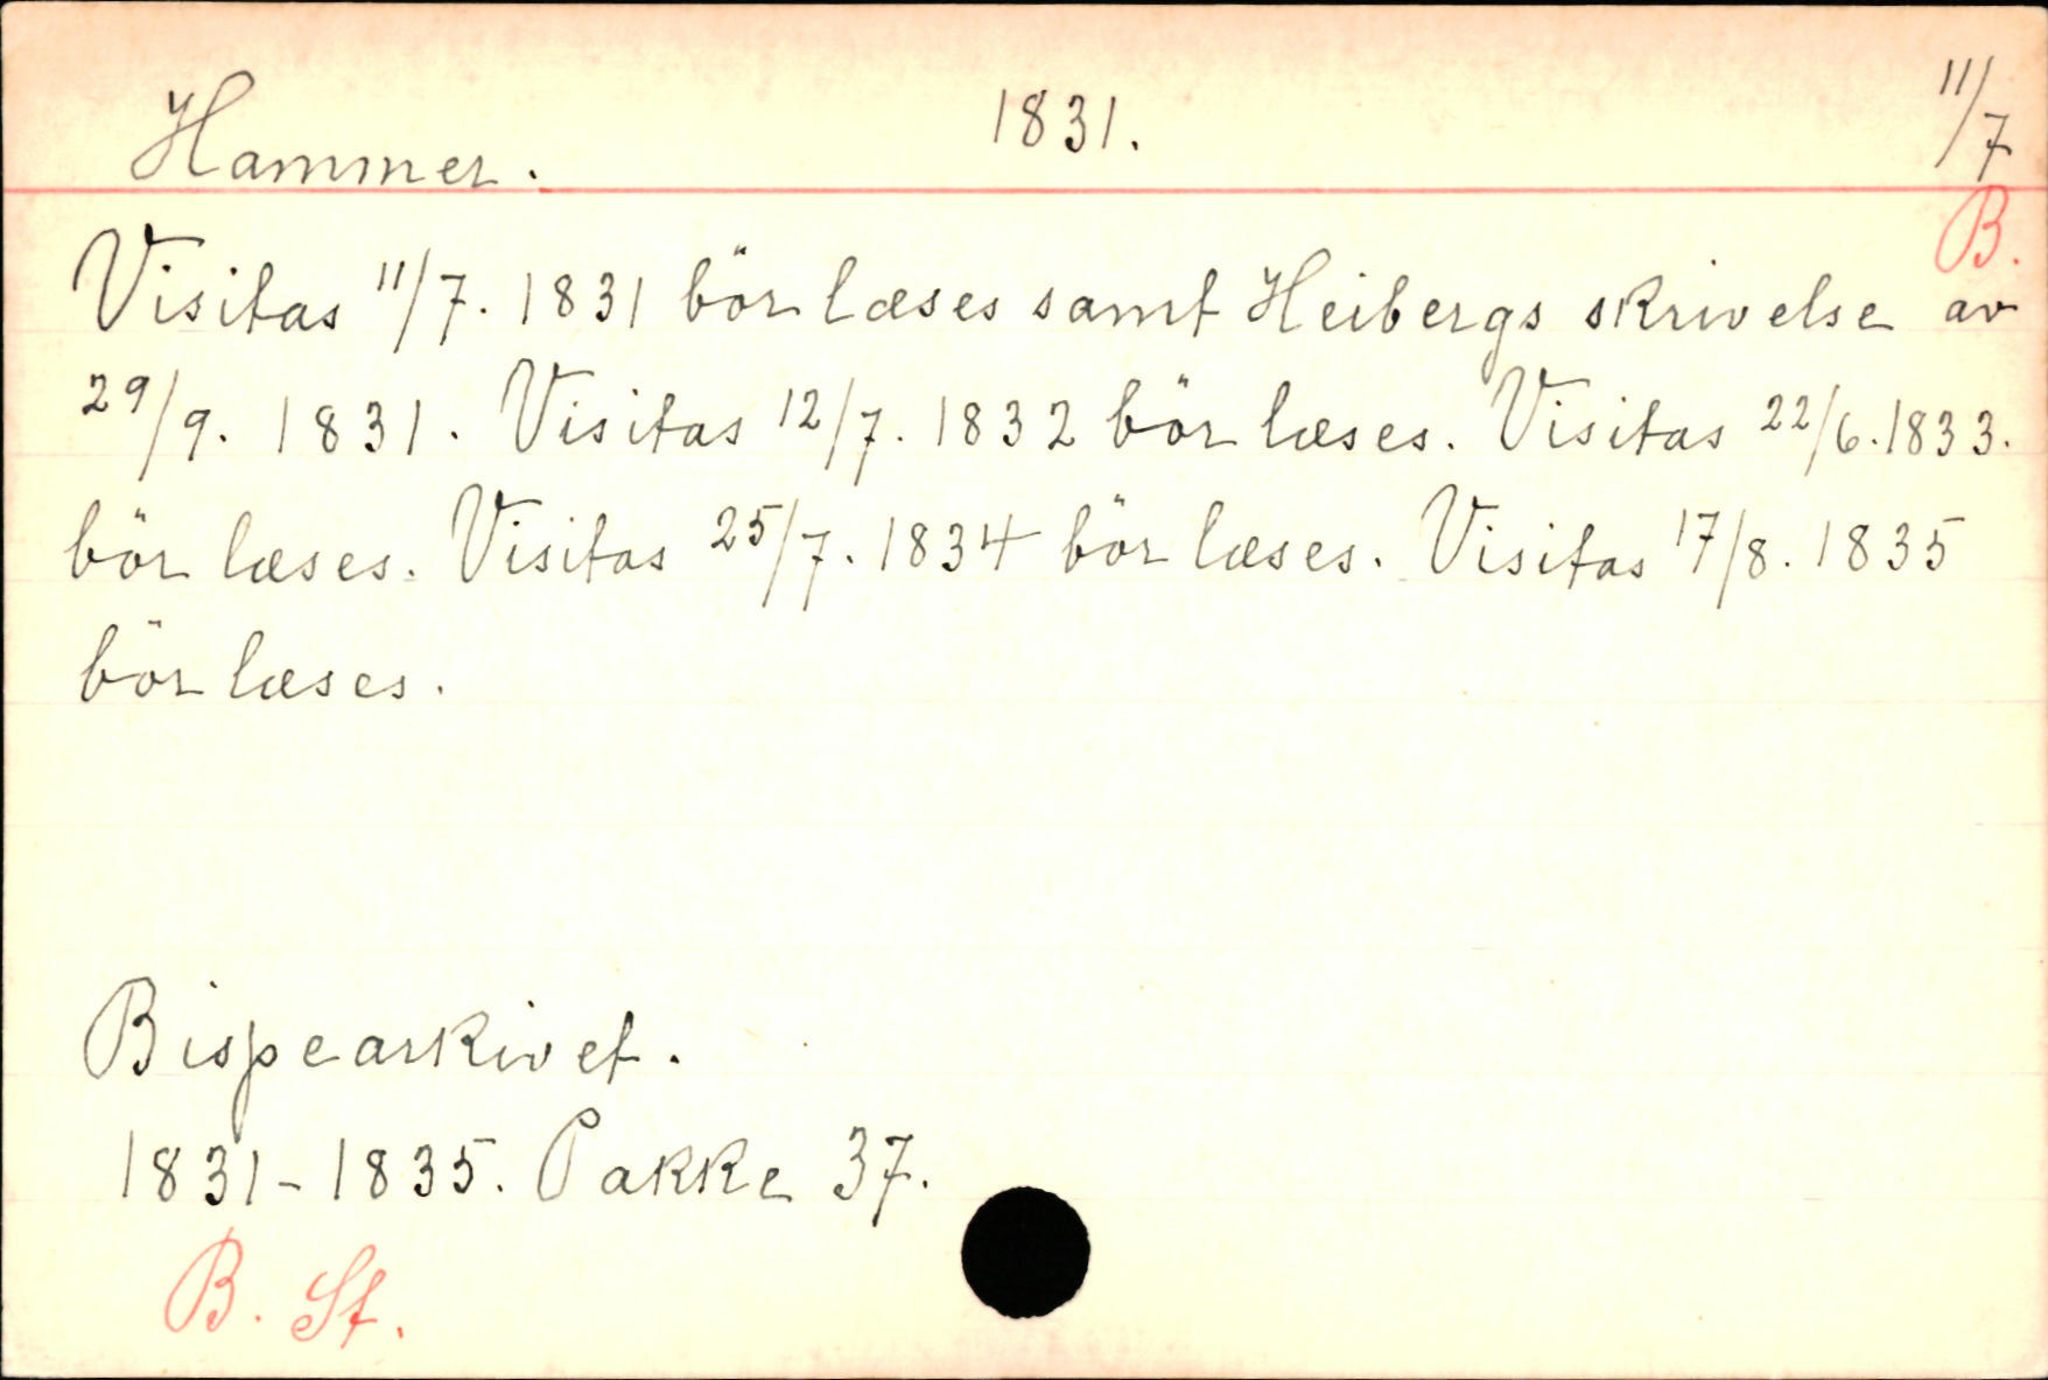 Hammer. 1831. 11/7
B.
Visitas 11/7. 1831 bör læses samt Heibergs skrivelse av
29/9. 1831. Visitas 12/7. 1832 bör læses. Visitas 22/6. 1833.
bör læses. Visitas 25/7. 1834 bör læses. Visitas 17/8. 1835
bör læses.
Bispearkivet.
1831-1835. Pakke 37.
B. St.